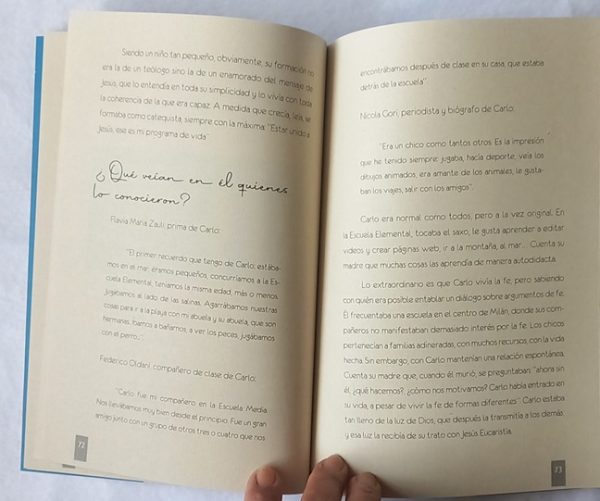 Siendo un niño tan pequeño, obviamente, su formación no
era la de un teólogo sino la de un enamorado del mensaje de
Jesús, que lo entendía en toda su simplicidad y lo vivía con toda
la coherencia de la que era capaz. A medida que crecía, leía, se
formaba como catequista, siempre con la máxima: "Estar unido a
Jesús, ese es mi programa de vida"
¿Qué veían en él quienes
lo conocieron?
Flavia María Zauli, prima de Carlo:
"El primer recuerdo que tengo de Carlo; estába-
mos en el mar, éramos pequeños, concurríamos a la Es-
cuela Elemental, teníamos la misma edad, más o menos,
jugábamos al lado de las salinas. Agarrábamos nuestras
cosas para ir a la playa con mi abuela y su abuela, que son
hermanas. Íbamos a bañarnos, a ver los peces, jugábamos
con el perro...
Federico Oldani, compañero de clase de Carlo:
"Carlo fue mi compañero en la Escuela Media.
Nos llevábamos muy bien desde el principio. Fue un gran
amigo junto con un grupo de otros tres o cuatro que nos
72
encontrábamos después de clase en su casa, que estaba
detrás de la escuela".
Nicola Gori, periodista y biógrafo de Carlo:
"Era un chico como tantos otros. Es la impresión
que he tenido siempre: jugaba, hacía deporte, veía los
dibujos animados, era amante de los animales, le gusta-
ban los viajes, salir con los amigos".
Carlo era normal como todos, pero a la vez original. En
la Escuela Elemental, tocaba el saxo, le gusta aprender a editar
videos y crear páginas web, ir a la montaña, al mar... Cuenta su
madre que muchas cosas las aprendía de manera autodidacta.
Lo extraordinario es que Carlo vivía la fe, pero sabiendo
con quién era posible entablar un diálogo sobre argumentos de fe.
Él frecuentaba una escuela en el centro de Milán, donde sus com-
pañeros no manifestaban demasiado interés por la fe. Los chicos
pertenecían a familias adineradas, con muchos recursos, con la vida
hecha. Sin embargo, con Carlo mantenían una relación espontánea.
Cuenta su madre que, cuando él murió, se preguntaban: "ahora sin
él, ¿qué hacemos?, ¿cómo nos motivamos? Carlo había entrado en
su vida, a pesar de vivir la fe de formas diferentes". Carlo estaba
tan lleno de la luz de Dios, que después la transmitía a los demás,
y esa luz la recibía de su trato con Jesús Eucaristía.
73